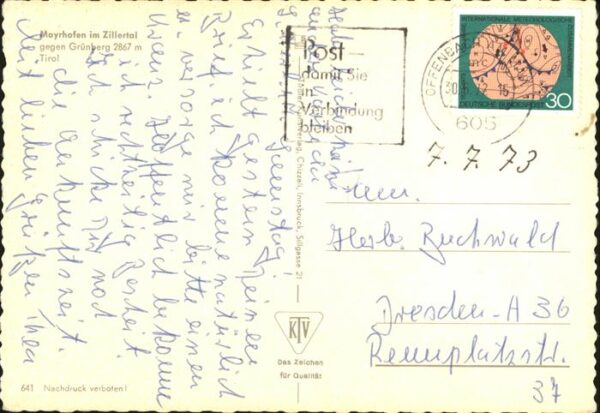 Mayrhofen im Zillertal
gegen Grünberg 2867 m
Tirol
Samstag!
Erhielt gestern Deinen
Brief, ich komme natürlich
u. besorge mir bitte einen
Kranz. Hoffentlich bekomme
ich rechtzeitig Bescheid
Ich schicke Dir noch
die Ankunftszeit.
Mit lieben Grüßen Thea
641 Nachdruck verboten!
Chizzali, Innsbruck, Sillgasse 21
KTV
Das Zeichen
für Qualität
Post
damit Sie
in
Verbindung
bleiben
OFFENBACH
605
INTERNATIONALE METEOROLOGISCHE
DEUTSCHE BUNDESPOST
30
7.7.73
Herb. Buchwald
Dresden-A 36
Rennplatzstr.
37